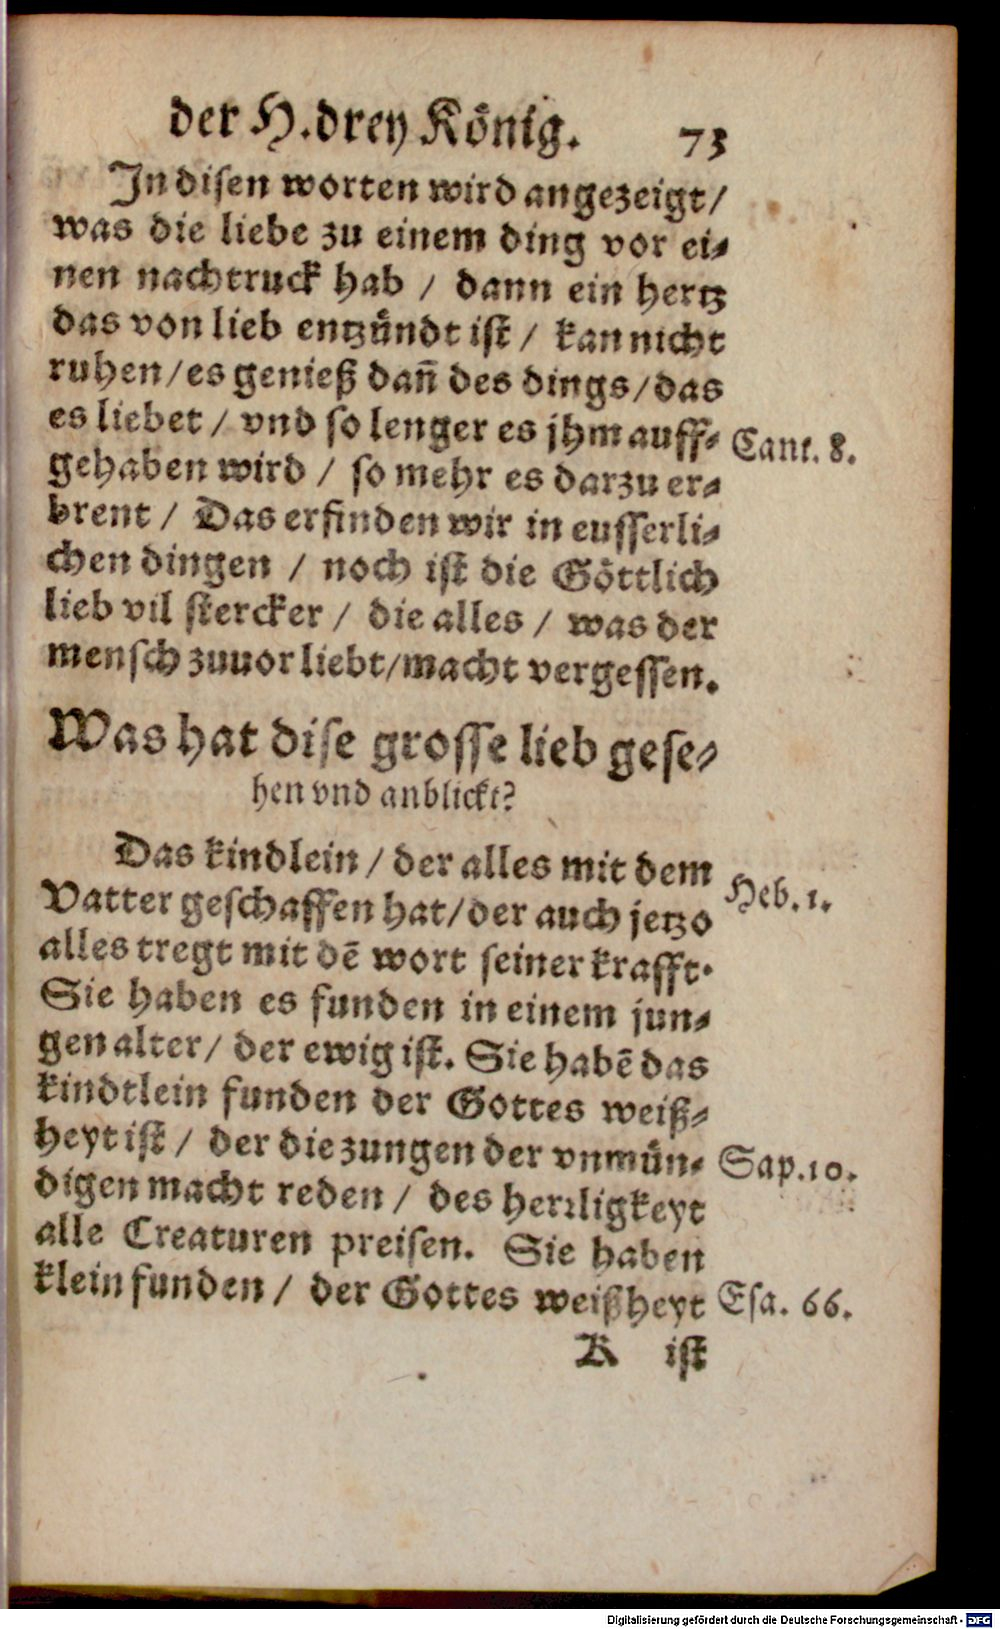 der H. drey König. 73
In disen worten wird angezeigt/
was die liebe zu einem ding vor ei⸗
nen nachtruck hab / dann ein hertz
das von lieb entzündt ist / kan nicht
ruhen/es genieß dañ des dings/das
es liebet / vnd so lenger es jhm auff⸗
Cant. 8.
gehaben wird / so mehr es darzu er⸗
brent / Das erfinden wir in eusserli⸗
chen dingen / noch ist die Göttlich
lieb vil stercker / die alles / was der
mensch zuuor liebt/macht vergessen.
Was hat dise grosse lieb gese⸗
hen vnd anblickt?
Das kindlein / der alles mit dem
Vatter geschaffen hat/der auch jetzo
Heb. 1.
alles tregt mit dē wort seiner krafft.
Sie haben es funden in einem jun⸗
gen alter/ der ewig ist. Sie habē das
kindtlein funden der Gottes weiß⸗
heyt ist / der die zungen der vnmün⸗
Sap. 10.
digen macht reden / des herꝛligkeyt
alle Creaturen preisen. Sie haben
klein funden / der Gottes weißheyt
Esa. 66.
K ist
Digitalisierung gefördert durch die Deutsche Forschungsgemeinschaft - DFG